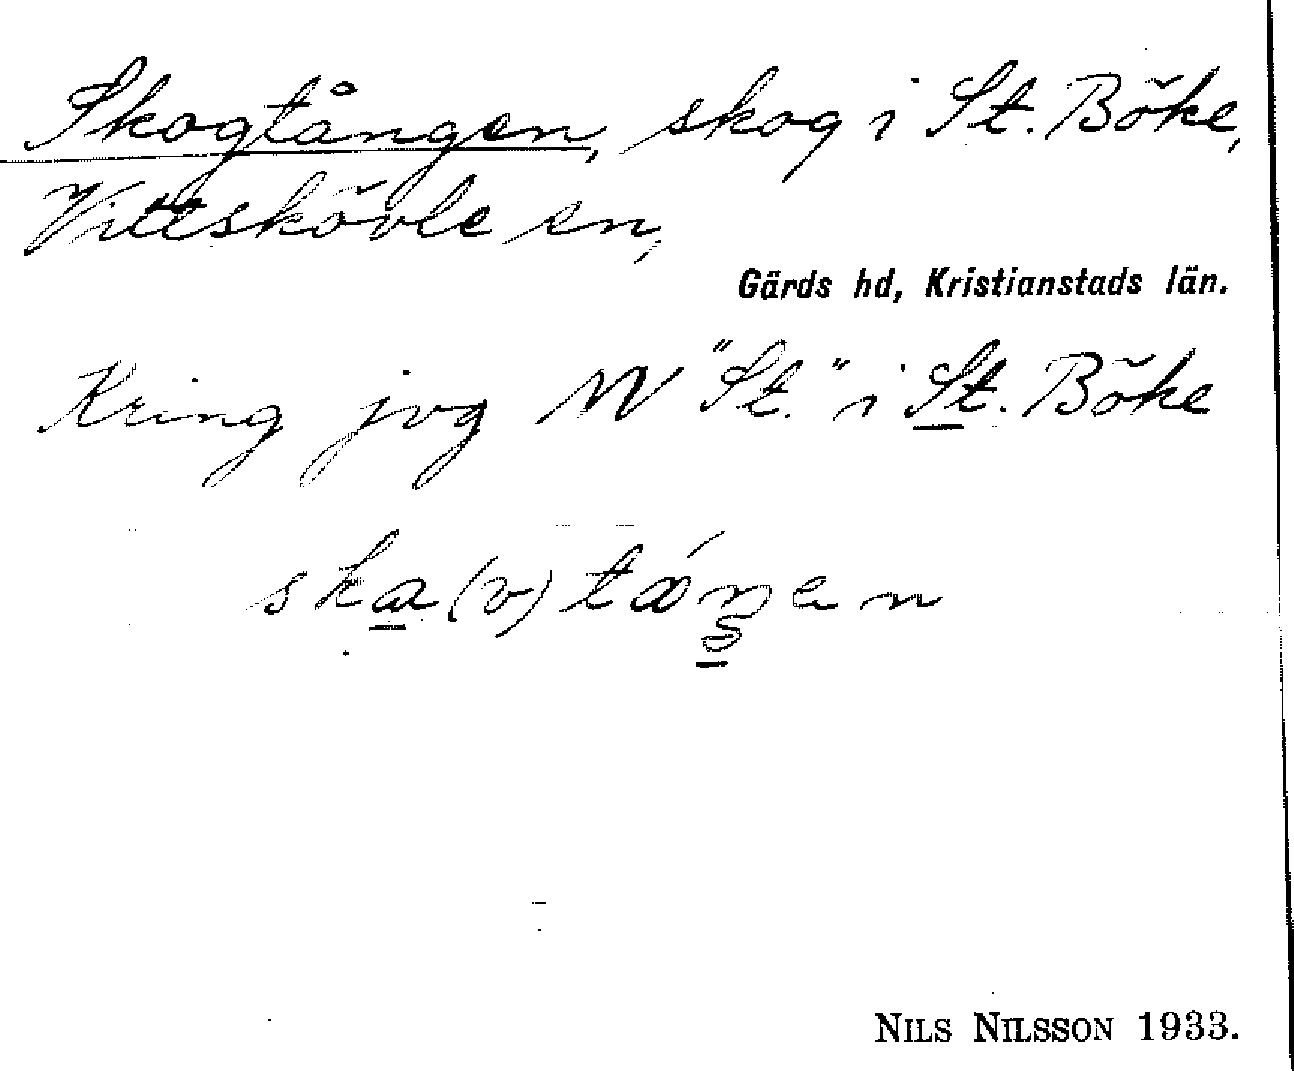 Skogtången, skog i St. Böke,
Vittskövle sn,
Gärds hd, Kristianstads län.
Kring jvg NV "St." i St. Böke
ska(v)táŋen
NILS NILSSON 1933.